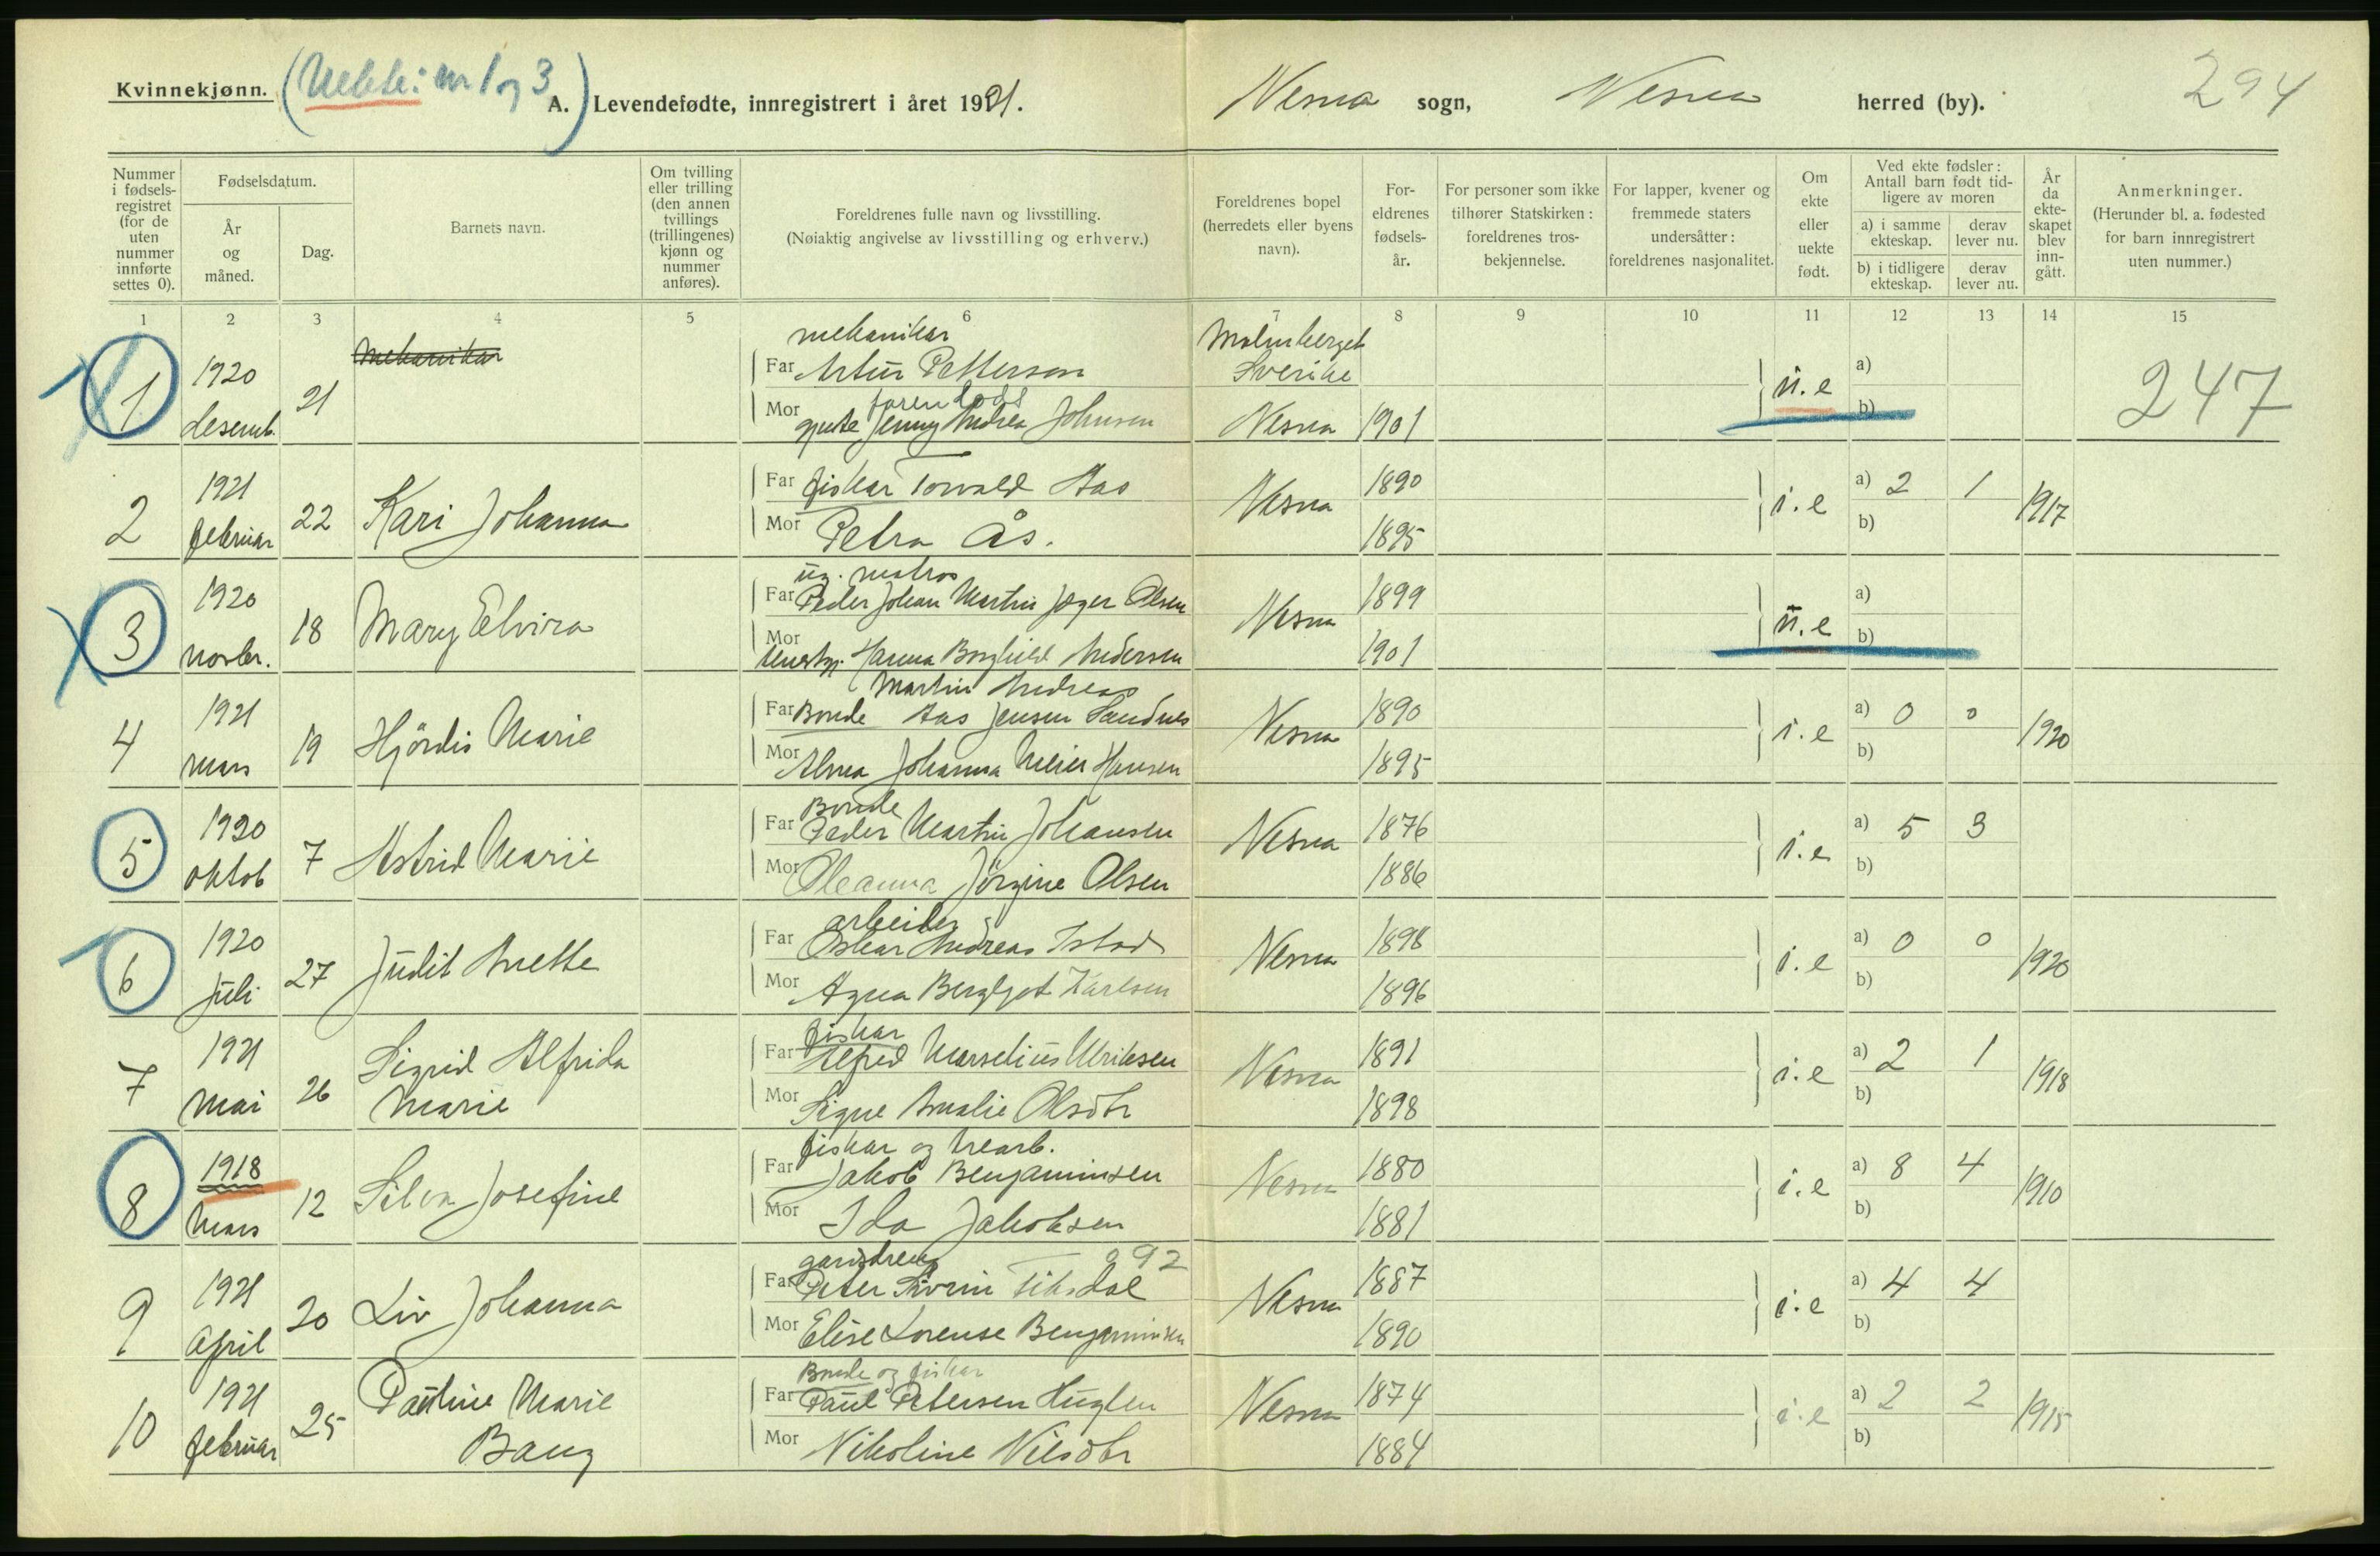 Kvinnekjønn.
(Uekte: nr 1 og 3)
A. Levendefødte, innregistrert i året 1921.
Nesna sogn, Nesna herred (by).
294
Nummer i fødsels-registret (for de uten nummer innførte settes 0).
Fødselsdatum.
År og måned.
Dag.
Barnets navn.
Om tvilling eller trilling (den annen tvillings (trillingenes) kjønn og nummer anføres).
Foreldrenes fulle navn og livsstilling.
(Nøiaktig angivelse av livsstilling og erhverv.)
Foreldrenes bopel (herredets eller byens navn).
For-eldrenes fødsels-år.
For personer som ikke tilhører Statskirken: foreldrenes tros-bekjennelse.
For lapper, kvener og fremmede staters undersåtter: foreldrenes nasjonalitet.
Om ekte eller uekte født.
Ved ekte fødsler: Antall barn født tid-ligere av moren
a) i samme ekteskap.
derav lever nu.
b) i tidligere ekteskap.
derav lever nu.
År da ekte-skapet blev inn-gått.
Anmerkninger.
(Herunder bl. a. fødested for barn innregistrert uten nummer.)
1 2 3 4 5 6 7 8 9 10 11 12 13 14 15
mekanikar
mekanikar
Malmberget
1 1920 desemb. 21
Far Artur Petterson Sverike
u.e a) b)
247
Mor gjente Jenny Andrea Johnsen Nesna 1901
2 1921 februar 22 Kari Johanna
Far fiskar Torvald Aas Nesna 1890
i.e a) 2 1 b) 1917
Mor Petra Ås. 1895
3 1920 novbr. 18 Mary Elvira
ug. matros
Far Peder Johan Martin Jæger Olsen Nesna 1899
u.e a) b)
Mor Hanna Borghild Andersen 1901
4 1921 mars 19 Hjördis Marie
Martin Andreas
Far Bonde Aas Jensen Sandnes Nesna 1890
i.e a) 0 0 b) 1920
Mor Alma Johanna Meier Hansen 1895
5 1920 oktob 7 Astrid Marie
Bonde
Far Peder Martin Johansen Nesna 1876
i.e a) 5 3 b)
Mor Oleanna Jörgine Olsen 1886
6 1920 juli 27 Judit Anette
arbeider
Far Oskar Andreas Nesna 1898
i.e a) 0 0 b) 1920
Mor Agna Bergljot Karlsen 1896
7 1921 mai 26 Sigrid Alfrida Marie
fiskar
Far Alfred Marselius Ulriksen Nesna 1891
i.e a) 2 1 b) 1918
Mor Signe Amalie Olsdtr 1898
8 1918 mars 12 Silva Josefine
fiskar og trearb.
Far Jakob Benjaminsen Nesna 1880
i.e a) 8 4 b) 1910
Mor Ida Jakobsen 1881
9 1921 April 20 Liv Johanna
gardsdreng 292
Far Peter Severin Nesna 1887
i.e a) 4 4 b)
Mor Elise Lorense Benjaminsen 1890
10 1921 februar 25 Pauline Marie Bang
Bonde og fiskar
Far Paul Petersen Huglen Nesna 1874
i.e a) 2 2 b) 1915
Mor Nikoline Nilsdtr 1884